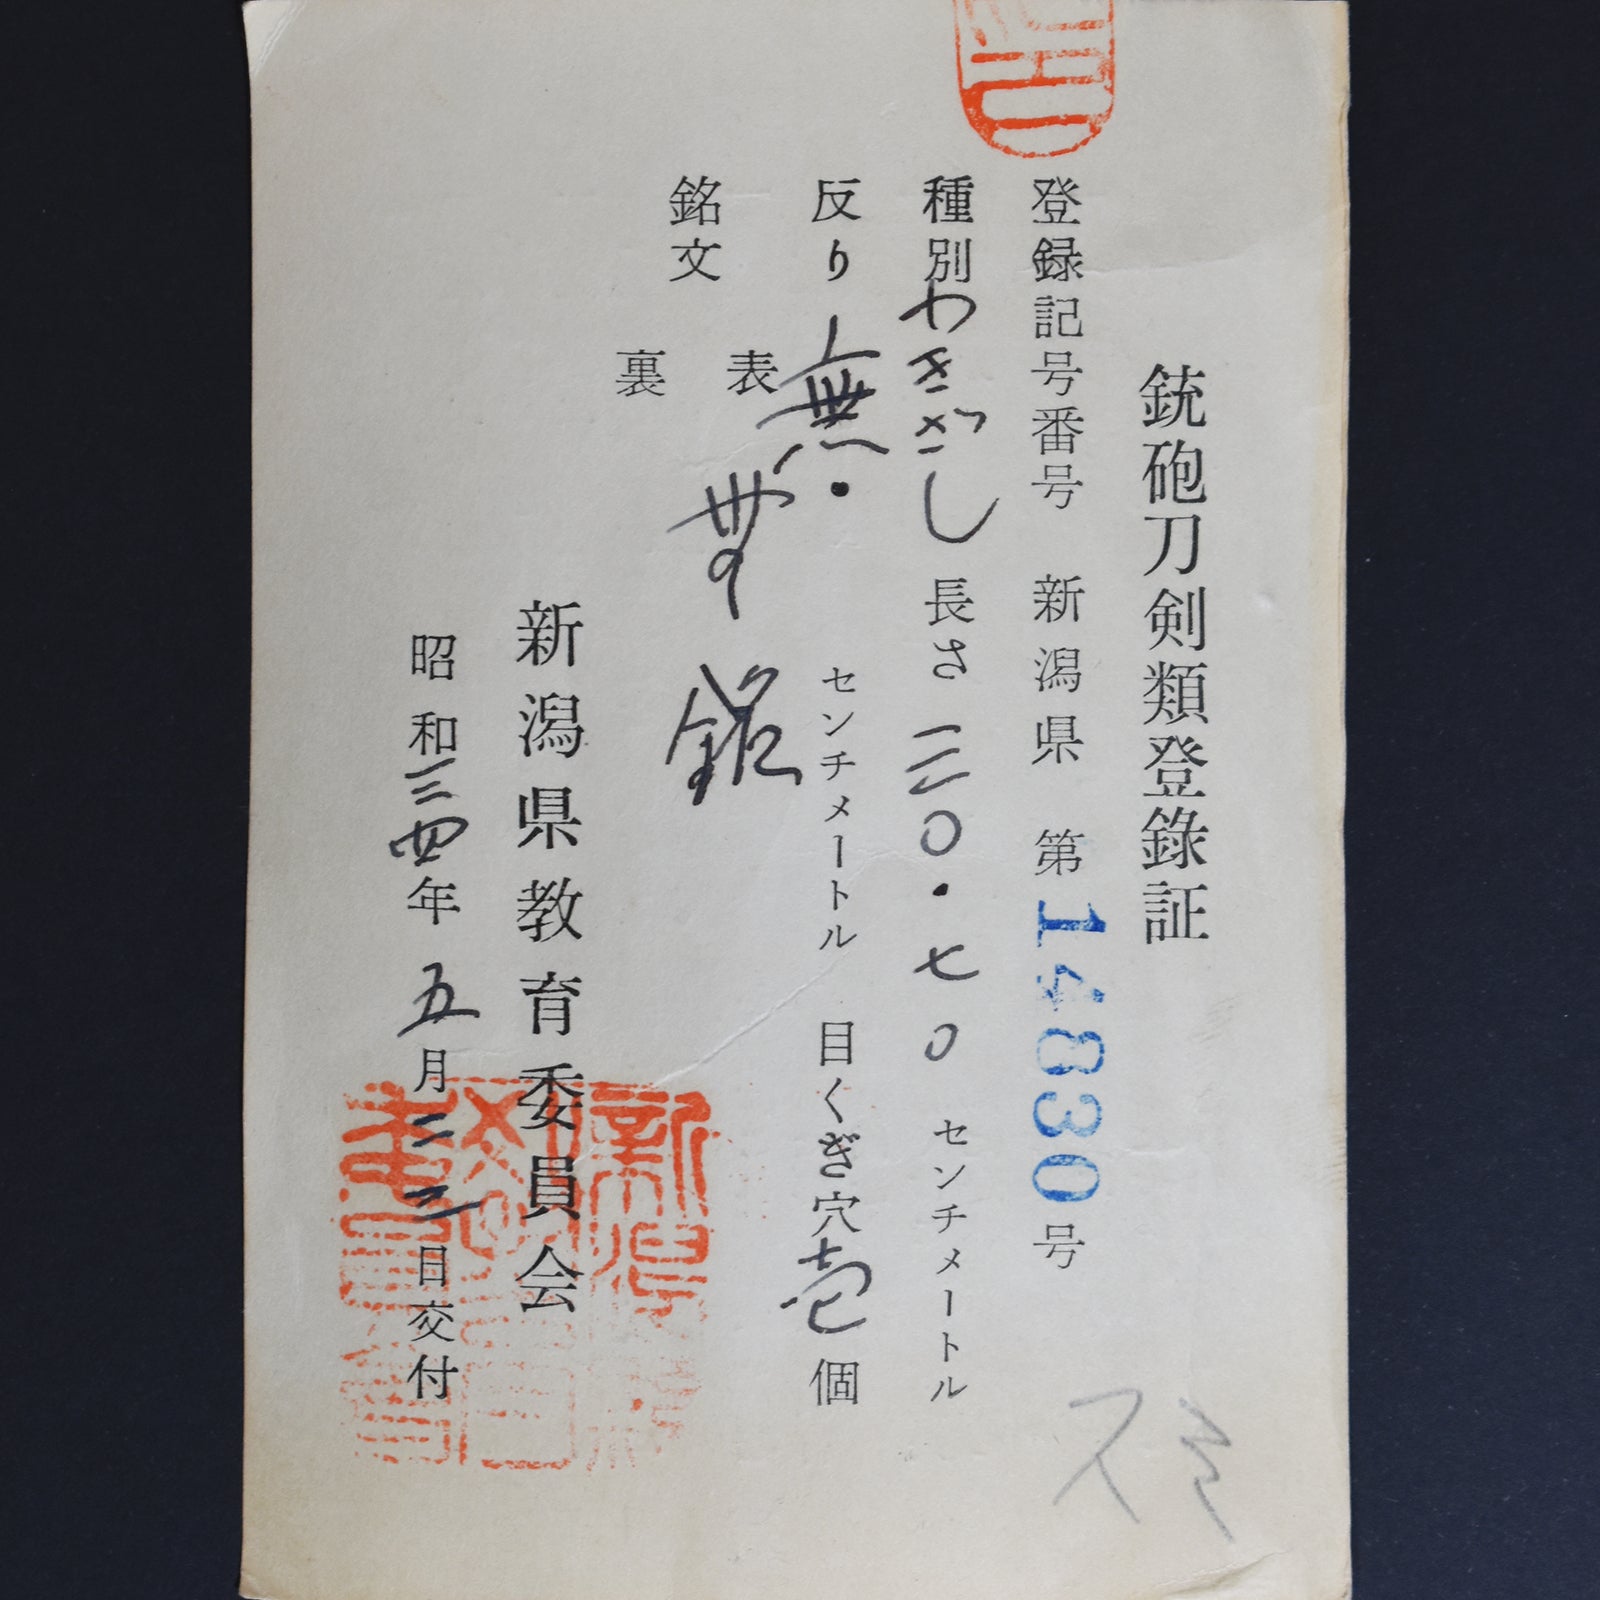 銃砲刀剣類登錄証
登録記号番号 新潟県 第14830号
種別 わきざし 長さ 三〇・七〇 センチメートル
反り 無・ センチメートル 目くぎ穴 壱 個
銘文 表 無銘
裏
新潟県教育委員会
昭和三四年五月二二日交付